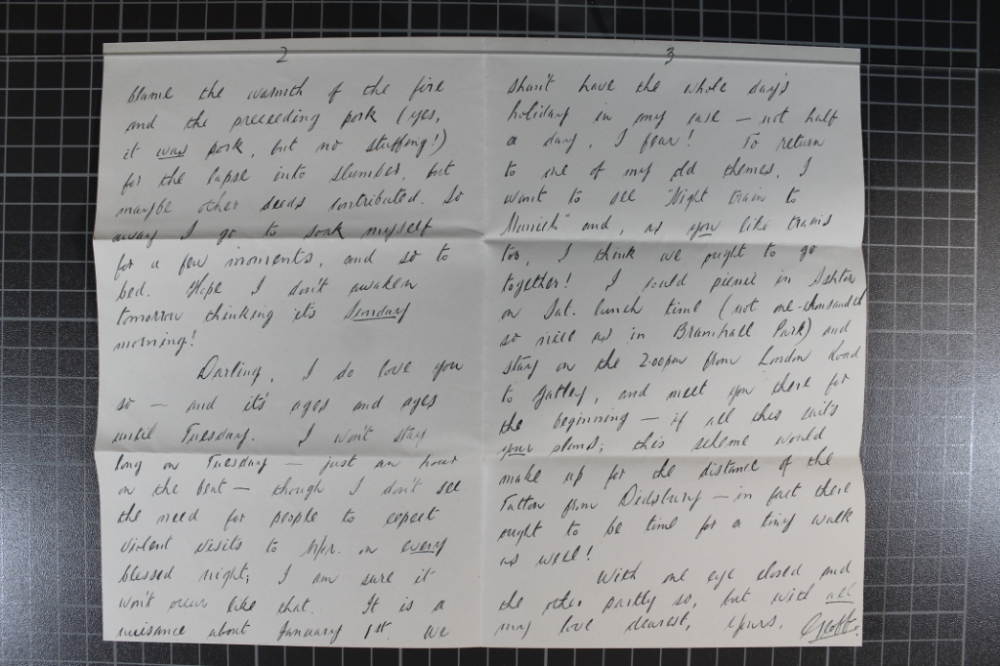 2
blame the warmth of the fire
and the preceeding pork (yes,
it was pork, but no stuffing!)
for the lapse into slumber, but
maybe other deeds contributed. So
away I go to soak myself
for a few moments, and so to
bed. Hope I don't awaken
tomorrow thinking its Sunday
morning!
Darling, I do love you
so — and it's ages and ages
until Tuesday. I won't stay
long on Tuesday — just an hour
on the beat — though I don't see
the need for people to expect
violent visits to M/cr. on every
blessed night; I am sure it
won't occur like that. It is a
nuisance about January 1st. We
3
shan't have the whole day's
holiday in my case — not half
a day, I fear! To return
to one of my old themes, I
want to see "Night train to
Munich" and, as you like trains
too, I think we ought to go
together! I could picnic in Ashton
on Sat. lunch time (not one-thousandth
so nice as in Bramhall Park) and
stay on the 2.00pm from London Road
to Gatley, and meet you there for
the beginning — if all this suits
your plans; this scheme would
make up for the distance of the
Tatton from Didsbury — in fact there
ought to be time for a tiny walk
as well!
With one eye closed and
the other partly so, but with all
my love dearest, Yours, Geoff.